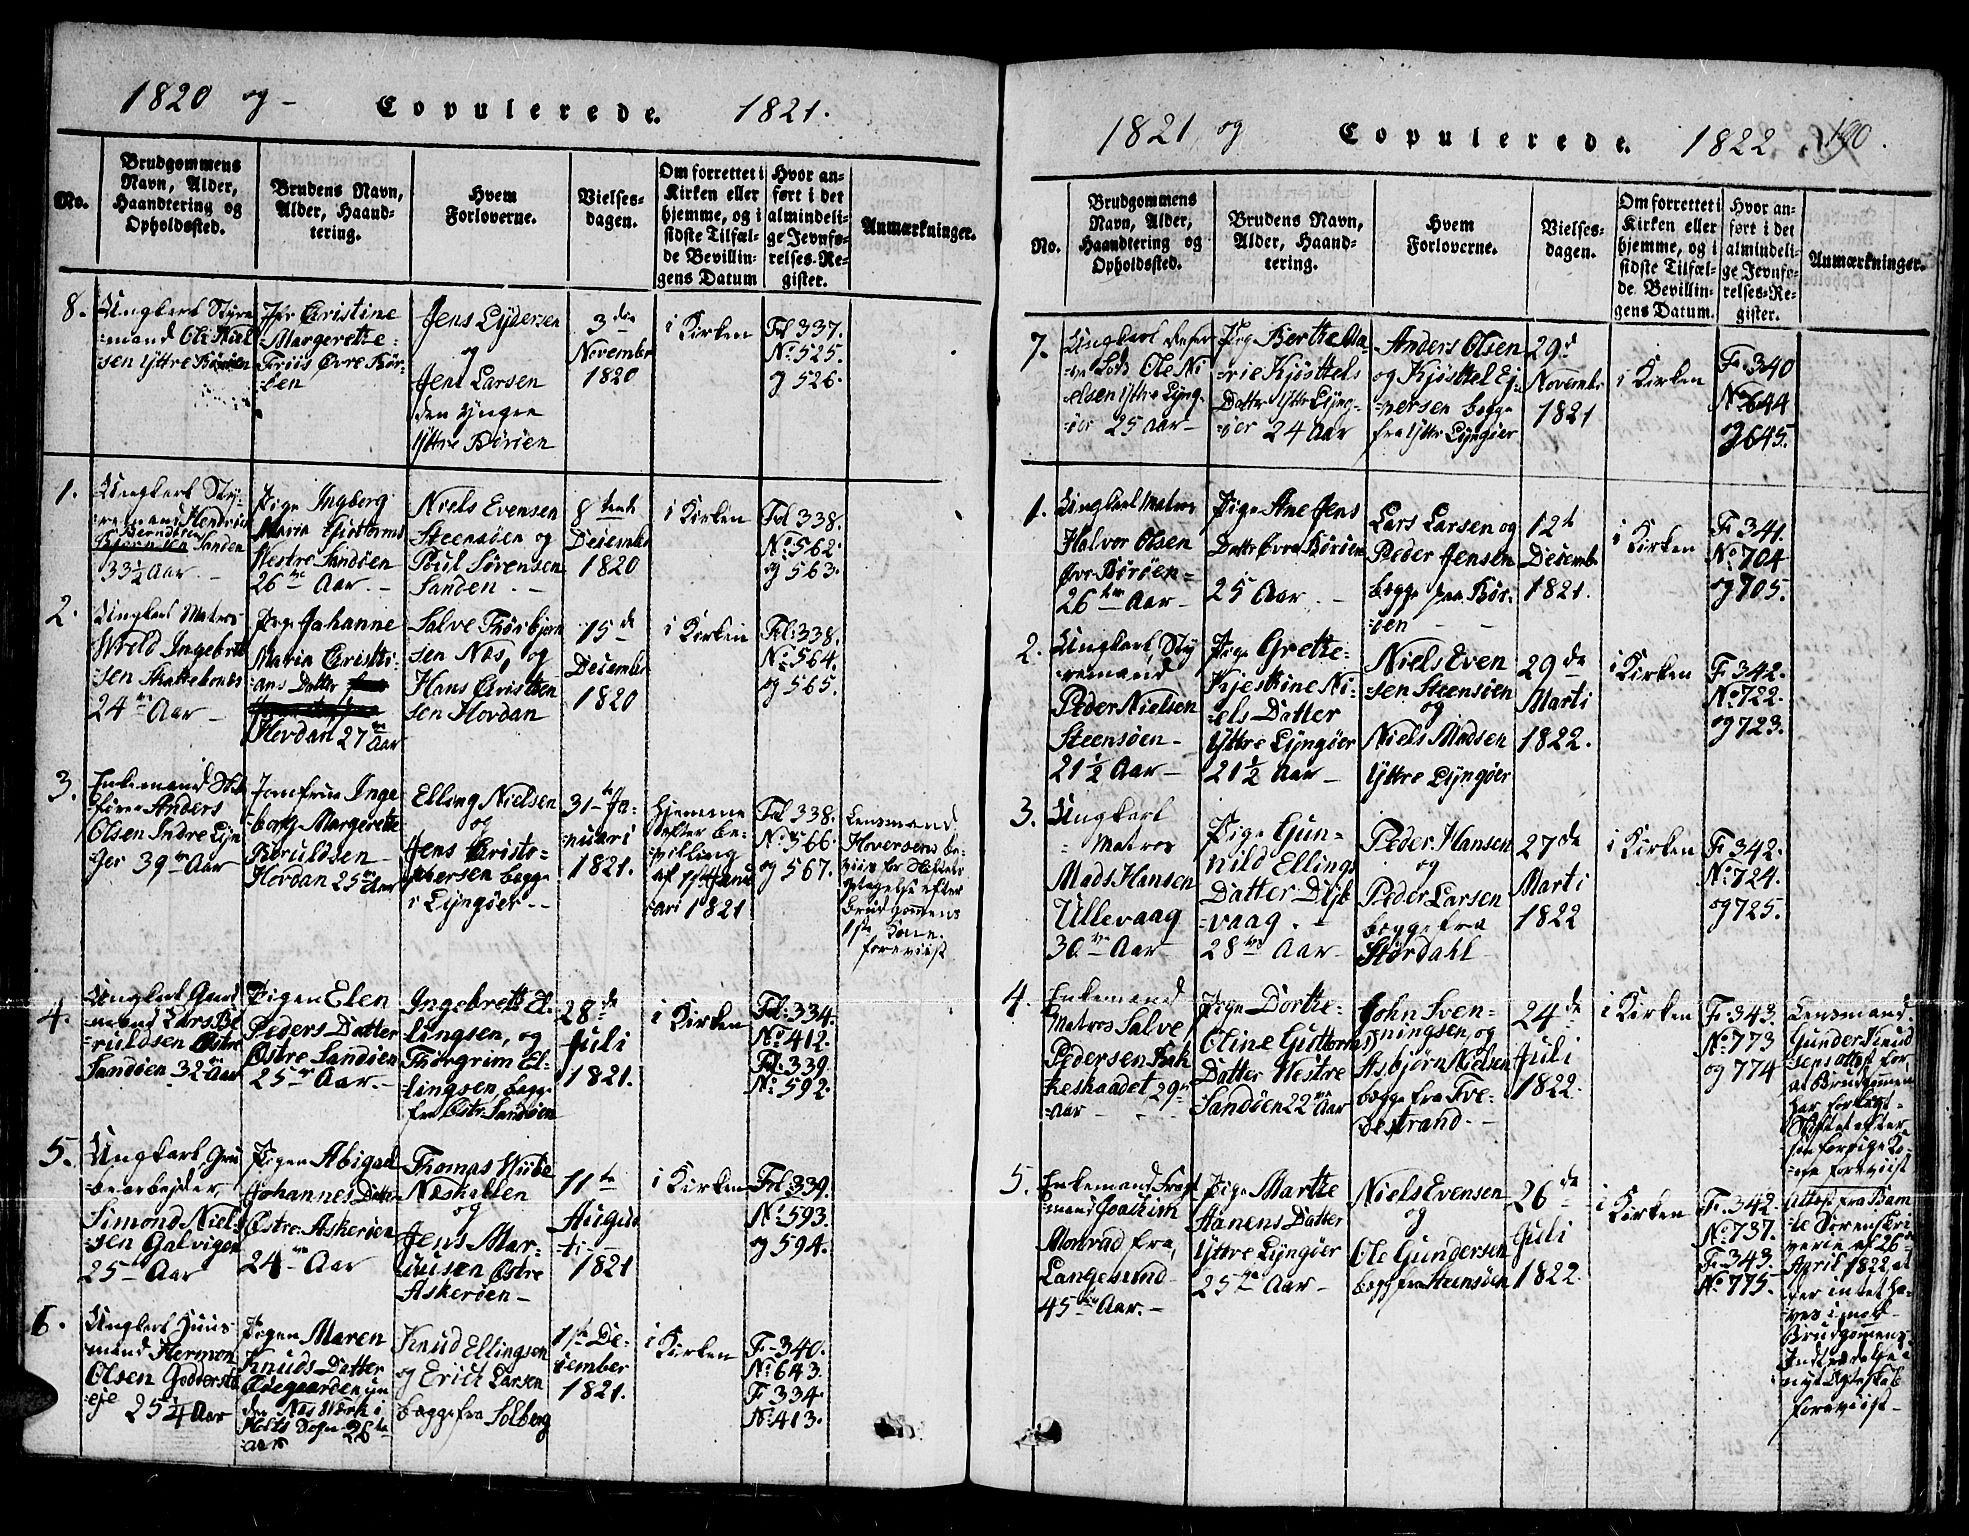 1820 og - Copulerede. 1821.
No.
Brudgommens
Navn, Alder,
Haandtering og
Opholdssted.
Brudens Navn,
Alder, Haand-
tering.
Hvem
Forloverne.
Vielses-
dagen.
Om forrettet i
Kirken eller
hjemme, og i
sidste Tilfæl-
de Bevillin-
gens Datum
Hvor an-
ført i det
almindeli-
ge Jevnfø-
relses-Re-
gister.
Anmærkninger.
8.
Ungkarl Styre
mand Ole Niel
sen Yttre Børøen
Jfr Cristine
Margerette
Friis Øvre Bør-
øen
Jens Lydersen
og
Jens Larsen
den Yngre
Yttre Børøen
3die
November
1820
i Kirken
Fol 337.
No. 525.
og 526.
1.
Ungkarl Sty-
remand Hendrich
Berndtsen
Sanden
33½ Aar. -
Pige Ingberg
Maria Guttorms
Westre Sandøen
26 Aar. -
Niels Evensen
Steensøen og
Poul Sørensen
Sanden. -
8tende
Decembr
1820
i Kirken
Fol 338.
No. 562.
og 563.
2.
Ungkarl Matros
Wrold Ingebret
sen Skattebones
24 Aar -
Pige Johanne
Maria Cristi-
ans Datter
Hovdan 27 Aar
Salve Thorbjørn
sen Næs, og
Hans Cristen
sen Hovdan
15de
Decembr
1820
i Kirken
Fol: 338.
No. 564.
og 565.
3.
Enkemand
Anders
Olsen Indre Lyn
gør 39 Aar
Jomfrue Inge
borg Margerette
Beruldsen
Hovdan 25 Aar
Elling Nielsen
og
Jens Cristo-
phersen begge
i Lyngøer -
31te Ja-
nuari
1821.
hjemme
efter be-
villing
af 1ste Janu
ari 1821
Fol 338.
No. 566.
og 567.
Lensmand
Hoversens be-
viis for Skiftets
Slagelse efter
Brudgommens
1ste Kone
foreviist
4.
Ungkarl Gaard
mand Lars Be
ruldsen Østre
Sandøen 32 Aar
Pigen Elen
Peders Datter
Østre Sandøen
25 Aar. -
Ingebrett El-
lingsen, og
Thorgrim El-
lingsen, begge
fra Østre Sandøen
28de
Juli
1821.
i Kirken
Fol: 334.
No. 412.
Fol: 339.
No. 592.
5.
Ungkarl Gru
bearbejder,
Simond Niel-
sen Galvigen
25 Aar
Pigen Abigael
Johannes Datter
Østre Askerøen
24 Aar
Thomas Wiibe
Næskielen
og
Jens Mar-
cusen Østre
Askerøen -
11te
Augus
ti -
1821
i Kirken
Fol. 339.
No. 593.
og 594.
6.
Ungkarl Huus
mand Hermon
Olsen Goderstd
eje 25¼ Aar
Pigen Maren
Knuds Datter
Øiegaarden un
der Næs Wærk i
Holts Sogn 26
Aar
Knud Ellingsen
og Erich Larsen
begge fra Solberg
1ste De-
cember
1821.
i Kirken
F. 340.
No. 643.
F. 334.
No. 413.
1821 og Copulerede. 1822. 190.
No.
Brudgommens
Navn, Alder,
Haandtering og
Opholdssted.
Brudens Navn,
Alder, Haand-
tering.
Hvem
Forloverne.
Vielses-
dagen.
Om forrettet i
Kirken eller
hjemme, og i
sidste Tilfæl-
de Bevillin-
gens Datum.
Hvor an-
ført i det
almindeli-
ge Jevnfø-
relses-Re-
gister.
Anmærkninger.
7.
Ungkarl
Lods Ole Ni
elsen Yttre Lyng-
øer 25 Aar -
Pige Berthe Ma-
rie Kjøstels
Datter Yttre Lyng-
øer 24 Aar
Anders Olsen
og Kjøstel Ej-
versen begge
fra Yttre Lyngøer
29de
Novembr
1821
i Kirken
F. 340
No. 644
og 645.
1.
Ungkarl Matros
Halvor Olsen
Øvre Børøen
26 Aar -
Pige Ane Jens
Datter Øvre Børøen
25 Aar. -
Lars Larsen og
Peder Jensen
begge fra Bør-
øen - -
12te
Decembr
1821.
i Kirken
F. 341.
No. 704
og 705.
2.
Ungkarl Sty
remand
Peder Nielsen
Steensøen
21½ Aar -
Pige Grette
Kjestine Ni-
els Datter
Yttre Lyngøer
21½ Aar -
Niels Even
sen Steensøen
og
Niels Madsen
Yttre Lyngøer
29de
Marti
1822.
i Kirken
F. 342.
No. 722.
og 723.
3.
Ungkarl
Matros
Mads Hansen
Ullevaag
30 Aar
Pige Gun-
nild Ellings
Datter Dyb
vaag. -
28 Aar
Peder Hansen
og
Peder Larsen
begge fra
Størdahl
27de
Marti
1822
i Kirken
F. 342.
No. 724.
og 725.
4.
Enkemand
Matros Salve
Pedersen Bak
keskaadet 29
Aar
Pige Dorthe
Oline Guttorms
Datter Westre
Sandøen 22 Aar
John Sven-
ningsen, og
Asbjørn Nielsen
begge fra Tve-
destrand. -
24de
Juli
1822.
i Kirken
F. 343.
No. 773
og 774
Lensmand
Gunder Knud
sens attest for,
at Brudgomen
har forlagt
Skiftet efter
sin forrige Ko-
ne foreviist
5.
Enkemand Fragt
mand Joachim
Monrad fra
Langesund
45 Aar. -
Pige Marthe
Hanens Datter
Yttre Lyngøer
25 Aar -
Niels Evensen
og
Ole Gundersen
begge fra Steensøen
26de
Juli
1822.
i Kirken
F. 342.
No. 737.
F. 343.
No. 775.
Attest fra Bam
le Sorenskri
verie af 26de
April 1822, at
der intet ha-
ves imod
Brudgomens
Indtrædelse i
nyt Ægteskab
foreviist -